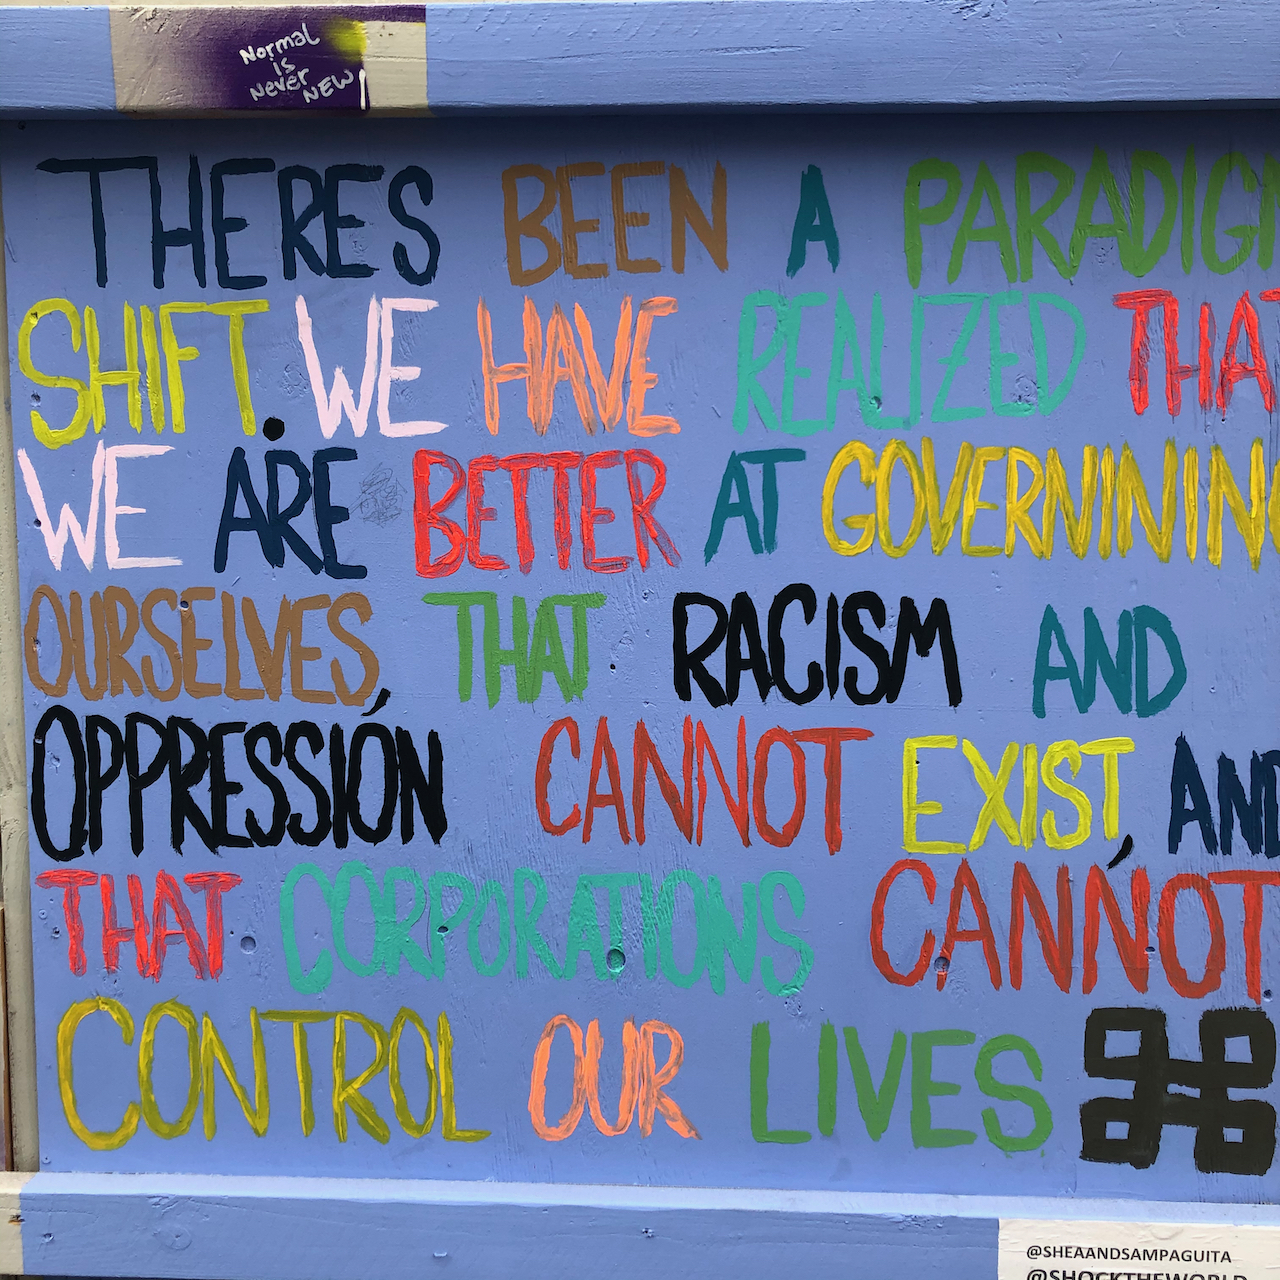 Normal
is
Never
NEW!
THERES BEEN A PARADIGM
SHIFT. WE HAVE REALIZED THAT
WE ARE BETTER AT GOVERNINING
OURSELVES, THAT RACISM AND
OPPRESSIÓN CANNOT EXIST, AND
THAT CORPORATIONS CANNOT
CONTROL OUR LIVES
@SHEAANDSAMPAGUITA
@SHOCKTHEWORLD